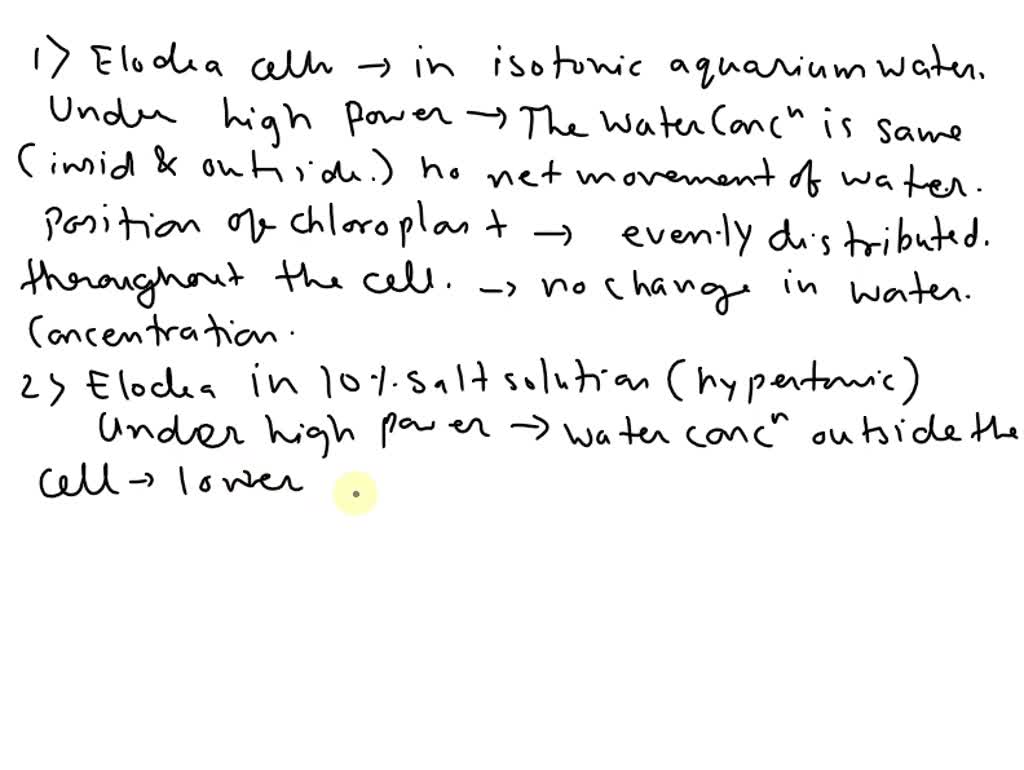 1) Elodea cell → in isotonic aquarium water.
Under high power → The water concⁿ is same
(insid & outside.) no net movement of water.
Position of chloroplast → evenly distributed.
throughout the cell. → no change in water.
concentration.
2) Elodea in 10% salt solution (hypertonic)
Under high power → water concⁿ outside the
cell → lower